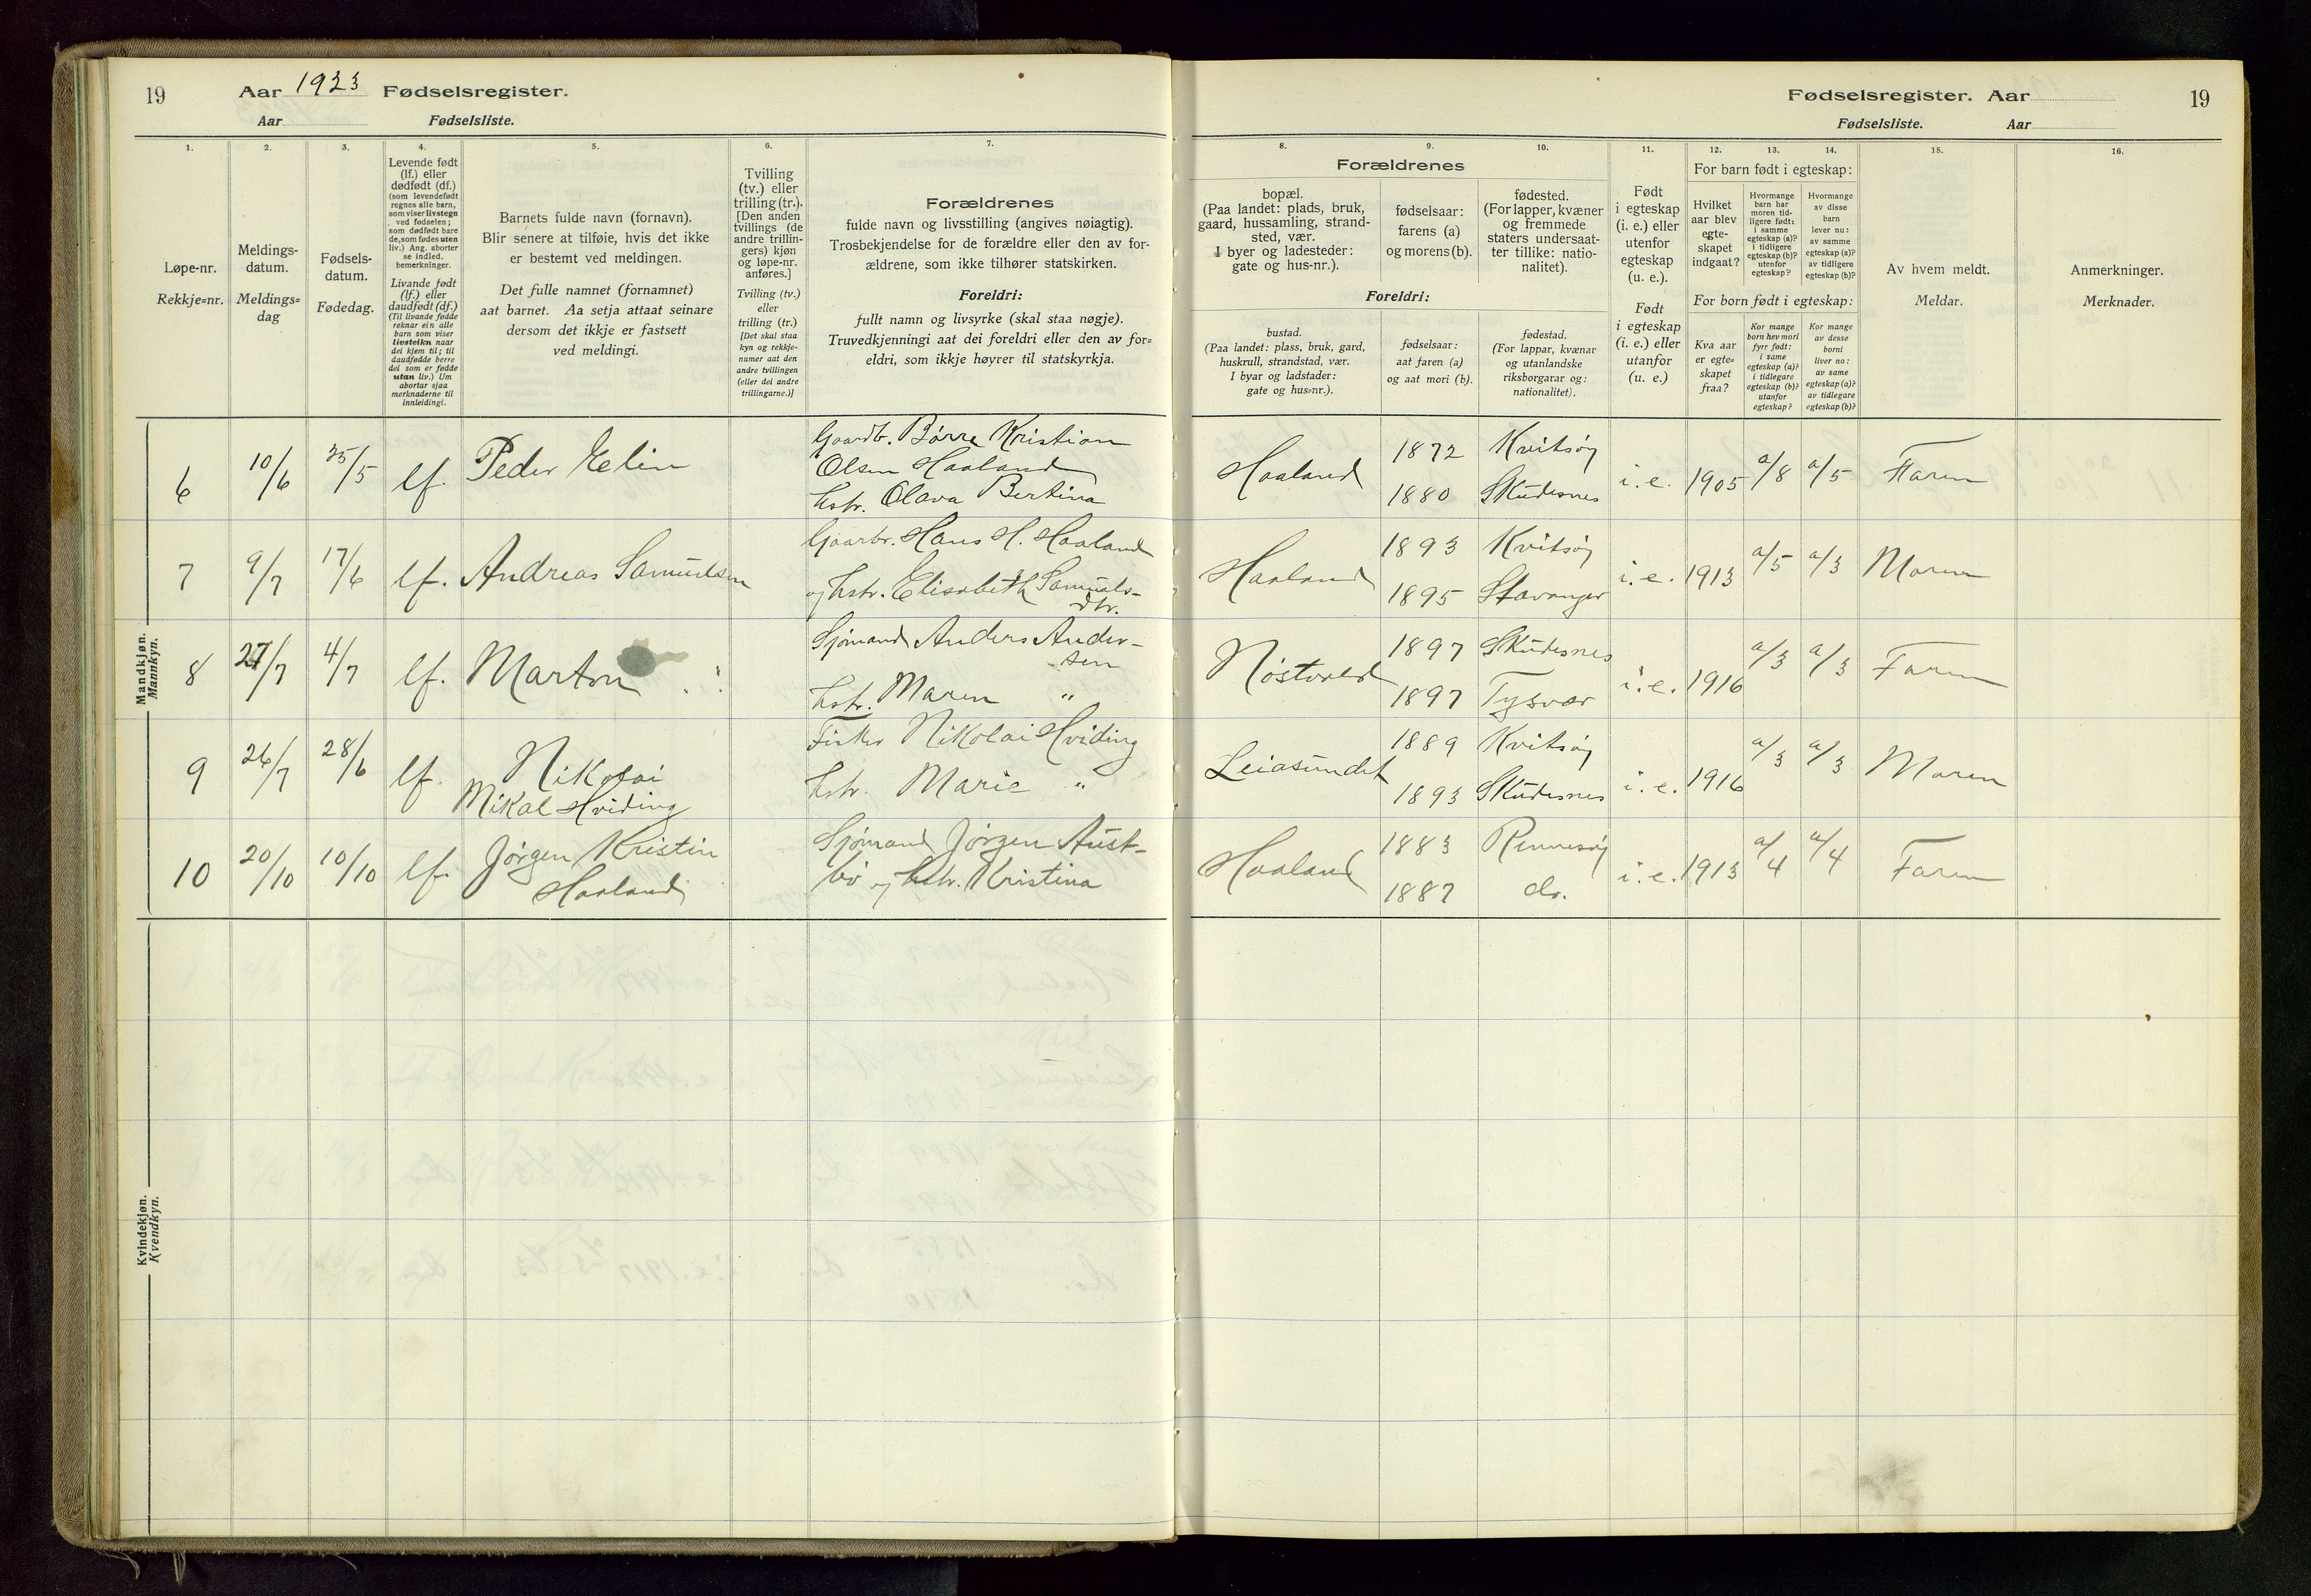 19 Aar 1923 Fødselsregister.
Aar Fødselsliste.
1. 2. 3. 4. 5. 6. 7.
Løpe-nr.
Rekkje-nr.
Meldings-
datum.
Meldings-
dag
Fødsels-
datum.
Fødedag.
Levende født
(lf.) eller
dødfødt (df.)
(som levendefødt
regnes alle barn,
som viser livstegn
ved fødselen;
som dødfødt bare
de, som fødes uten
liv.) Ang. aborter
se indled.
bemerkninger.
Livande født
(lf.) eller
daudfødt (df.)
(Til livande fødde
reknar ein alle
barn som viser
livsteikn naar
dei kjem til; til
daudfødde berre
dei som er fødde
utan liv.) Um
abortar sjaa
merknaderne til
innleidingi.
Barnets fulde navn (fornavn).
Blir senere at tilføie, hvis det ikke
er bestemt ved meldingen.
Det fulle namnet (fornamnet)
aat barnet. Aa setja attaat seinare
dersom det ikkje er fastsett
ved meldingi.
Tvilling
(tv.) eller
trilling (tr.).
[Den anden
tvillings (de
andre trillin-
gers) kjøn
og løpe-nr.
anføres.]
Tvilling (tv.)
eller
trilling (tr.)
[Det skal staa
kyn og rekkje-
numer aat den
andre tvillingen
(eller dei andre
trillingarne.)]
Forældrenes
fulde navn og livsstilling (angives nøiagtig).
Trosbekjendelse for de forældre eller den av for-
ældrene, som ikke tilhører statskirken.
Foreldri:
fullt namn og livsyrke (skal staa nøgje).
Truvedkjenningi aat dei foreldri eller den av for-
eldri, som ikkje høyrer til statskyrkja.
Mandkjøn.
Mannkyn.
6 10/6 25/5 lf. Peder Elin
Gaardb. Børre Kristian
Olsen Haaland
hstr. Olava Bertina
7 9/7 17/6 lf. Andreas Samuelsen
Gaarbr. Hans H. Haaland
og hstr. Elisabeth Samuels-
dtr.
8 27/7 4/7 lf. Marton
Sjømand Anders Ander-
sen
hstr. Maren "
9 26/7 28/6 lf. Nikolai
Mikal Hviding
Fisker Nikolai Hviding
hstr. Marie "
10 20/10 10/10 lf. Jørgen Kristin
Haaland
Sjømand Jørgen Aust-
bø og hstr. Kristina
Kvindekjøn.
Kvendkyn.
Fødselsregister. Aar 19
Fødselsliste. Aar
8. 9. 10. 11. 12. 13. 14. 15. 16.
Forældrenes
bopæl.
(Paa landet: plads, bruk,
gaard, hussamling, strand-
sted, vær.
I byer og ladesteder:
gate og hus-nr.).
fødselsaar:
farens (a)
og morens (b).
fødested.
(For lapper, kvæner
og fremmede
staters undersaat-
ter tillike: natio-
nalitet).
Foreldri:
bustad.
(Paa landet: plass, bruk, gard,
huskrull, strandstad, vær.
I byar og ladstader:
gate og hus-nr.).
fødselsaar:
aat faren (a)
og aat mori (b).
fødestad.
(For lappar, kvænar
og utanlandske
riksborgarar og:
nationalitet).
Født
i egteskap
(i. e.) eller
utenfor
egteskap
(u. e.).
Født
i egteskap
(i. e.) eller
utanfor
(u. e.)
For barn født i egteskap:
Hvilket
aar blev
egte-
skapet
indgaat?
Hvormange
barn har
moren tid-
ligere født:
i samme
egteskap (a)?
i tidligere
egteskap (b)?
utenfor
egteskap?
Hvormange
av disse
barn
lever nu:
av samme
egteskap (a)?
av tidligere
egteskap (b)?
For born født i egteskap:
Kva aar
er egte-
skapet
fraa?
Kor mange
born hev mori
fyrr født:
i same
egteskap (a)?
i tidlegare
egteskap (b)?
utanfor
egteskap?
Kor mange
av desse
borni
liver no:
av same
egteskap (a)?
av tidlegare
egteskap (b)?
Av hvem meldt.
Meldar.
Anmerkninger.
Merknader.
Haaland 1872 Kvitsøy
1880 Skudesnes i. e. 1905 a/8 a/5 Faren
Haaland 1893 Kvitsøy
1895 Stavanger i. e. 1913 a/5 a/3 Moren
Nøstvold 1897 Skudesnes
1897 Tysvær i. e. 1916 a/3 a/3 Faren
Leiasundet 1889 Kvitsøy
1893 Skudesnes i. e. 1916 a/3 a/3 Moren
Haaland 1883 Rennesøy
1887 do. i. e. 1913 a/4 a/4 Faren